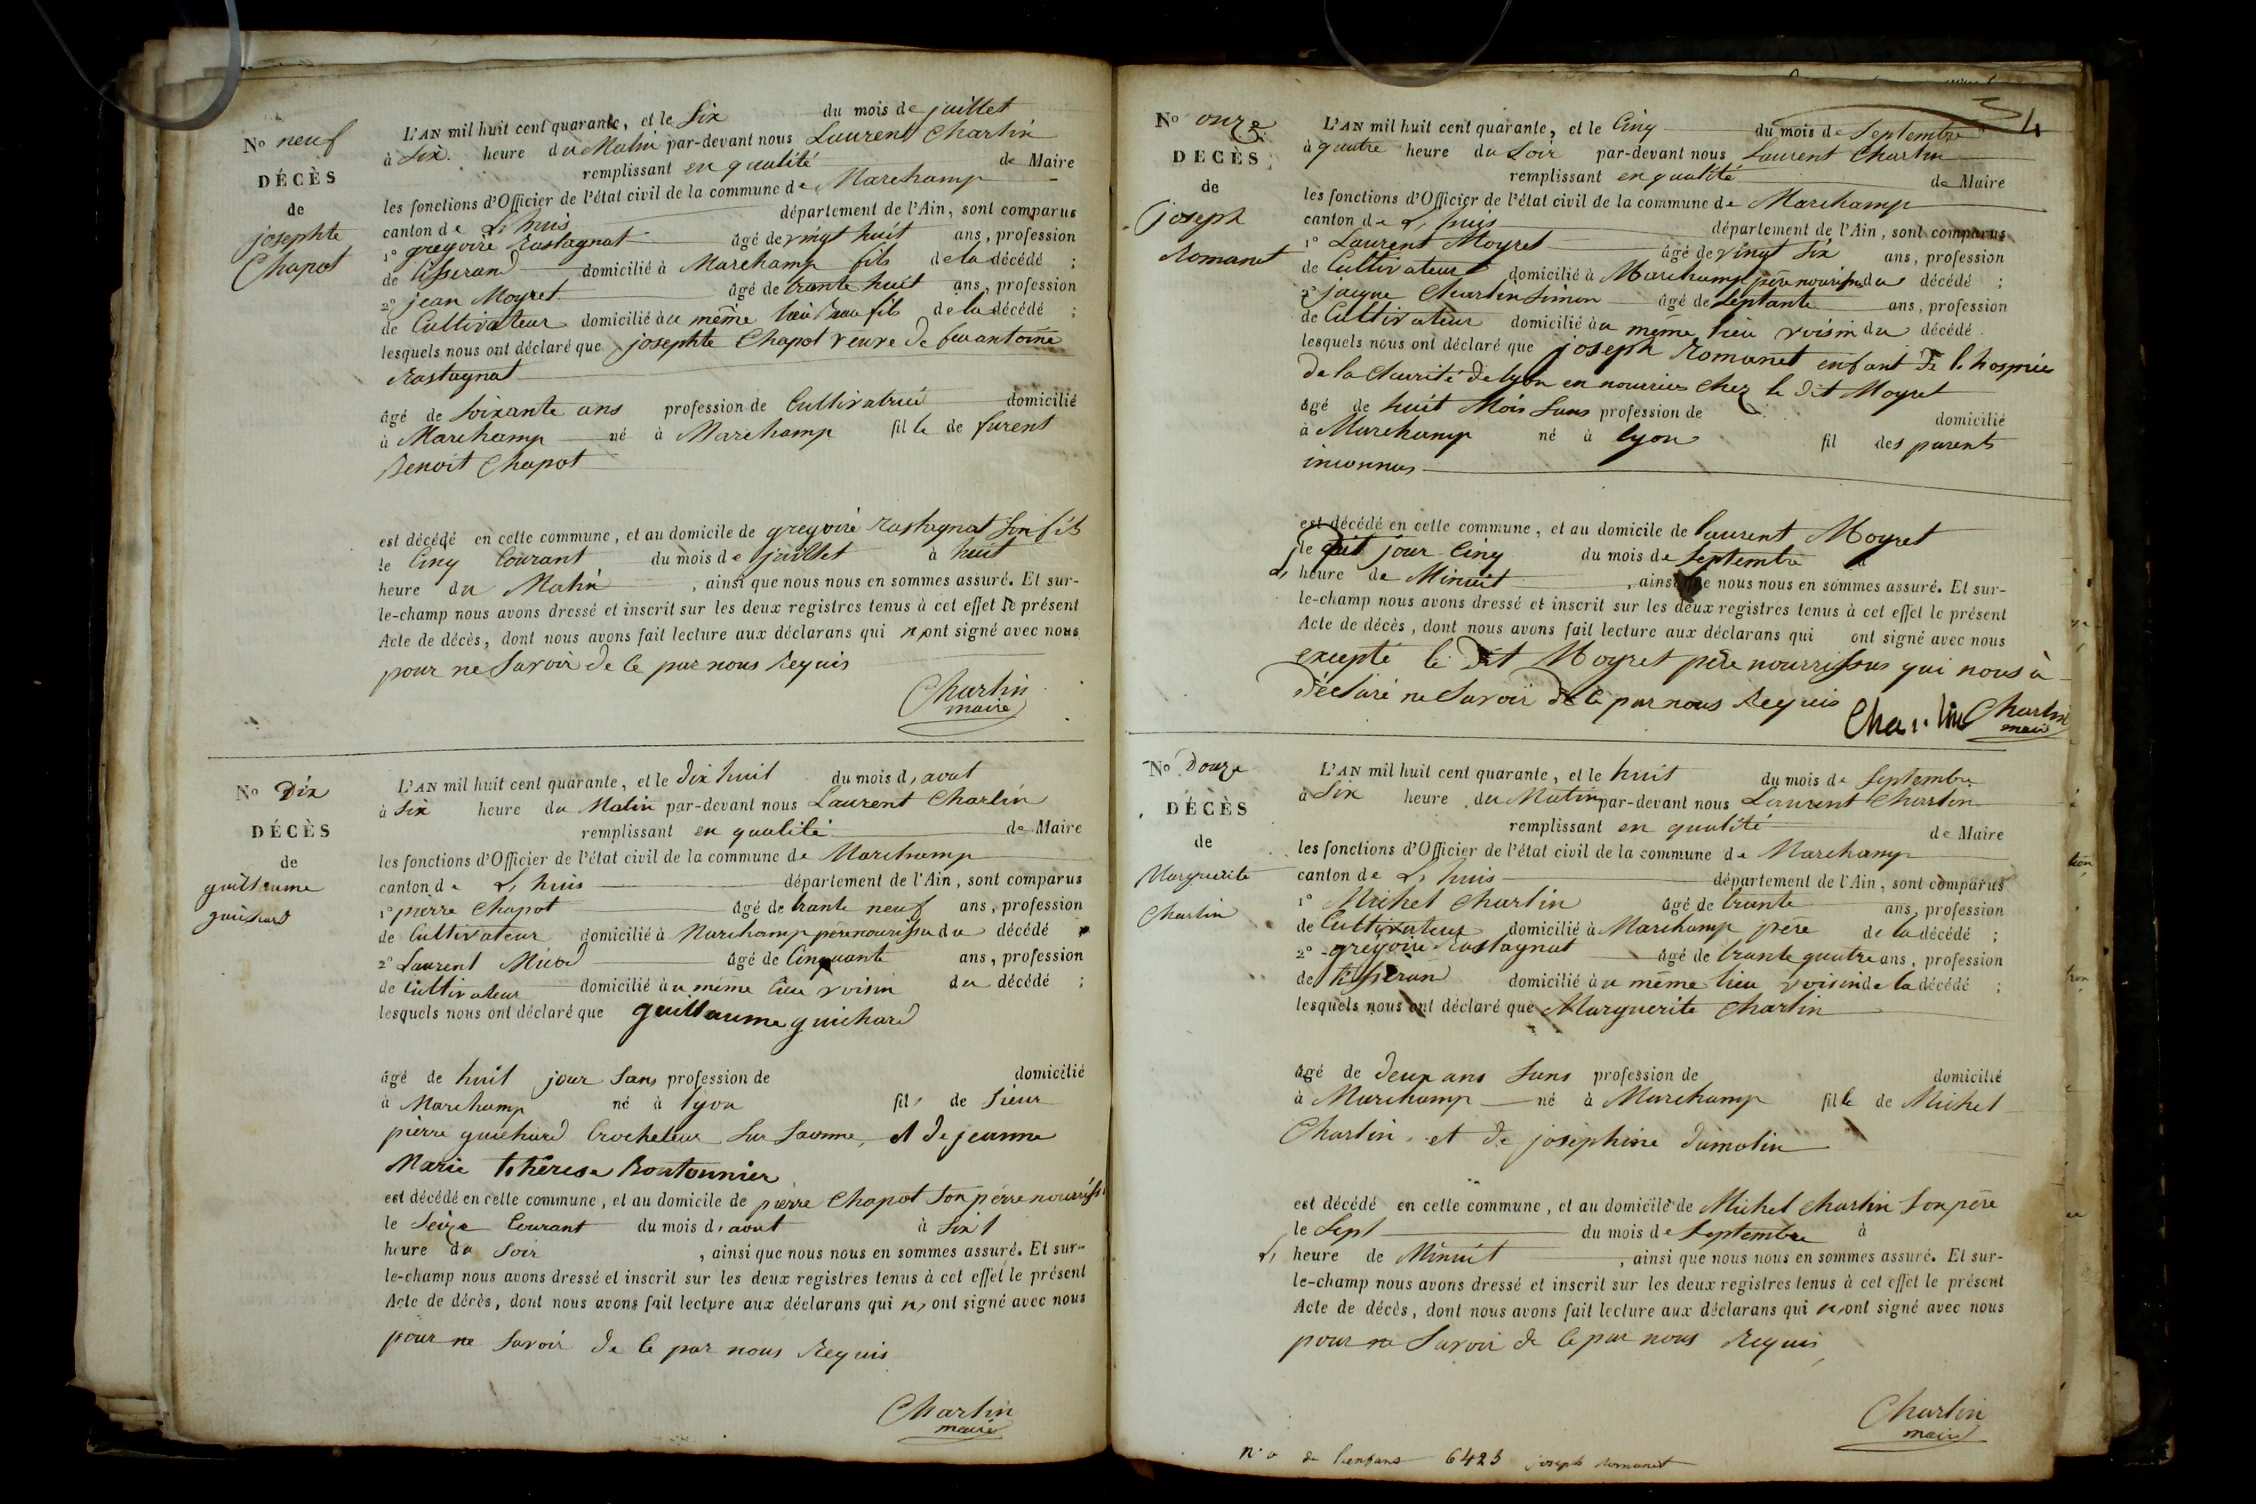 No neuf
DÉCÈS
de
josephte
Chapot
L'AN mil huit cent quarante, et le Six du mois de juillet
à Six heure du Matin par-devant nous Laurent Charlin
remplissant en qualité de Maire
les fonctions d'Officier de l'état civil de la commune de Marchamp
canton de L, huis département de l'Ain, sont comparus
1° gregoire Rastagnat âgé de vingt huit ans, profession
de tisserand domicilié à Marchamp fils de la décédé ;
2° jean Moyret âgé de trante huit ans, profession
de Cultivateur domicilié à u même lieu Beau fils de la décédé ;
lesquels nous ont déclaré que josephte Chapot veuve de feu antoine
Rastagnat
âgé de Soixante ans profession de Cultivatrice domicilié
à Marchamp né à Marchamp fil le de furent
Benoit Chapot
est décédé en cette commune, et au domicile de gregoire rastagnat Son fils
le Cinq Courant du mois de juillet à huit
heure du Matin , ainsi que nous nous en sommes assuré. Et sur-
le-champ nous avons dressé et inscrit sur les deux registres tenus à cet effet le présent
Acte de décès, dont nous avons fait lecture aux déclarans qui n, ont signé avec nous
pour ne Savoir de Ce par nous Requis
Charlin
maire
No Dix
DÉCÈS
de
guillaume
guichard
L'AN mil huit cent quarante, et le dix huit du mois d, aout
à Six heure du Matin par-devant nous Laurent Charlin
remplissant en qualité de Maire
les fonctions d'Officier de l'état civil de la commune de Marchamp
canton de L, huis département de l'Ain, sont comparus
1° pierre Chapot âgé de trante neuf ans, profession
de Cultivateur domicilié à Marchamp père nourissu du décédé
2° Laurent Miod âgé de Cinquante ans, profession
de Cultivateur domicilié à u même lieu voisin du décédé ;
lesquels nous ont déclaré que guillaume guichard
âgé de huit jour Sans profession de domicilié
à Marchamp né à lyon fil, de Sieur
pierre guichard Crocheteur Sur Saonne, et de jeanne
Marie thérese Boutonnier
est décédé en cette commune, et au domicile de pierre Chapot Son pérre nourriss
le Seize Courant du mois d, aout à Six
heure du Soir , ainsi que nous nous en sommes assuré. Et sur-
le-champ nous avons dressé et inscrit sur les deux registres tenus à cet effet le présent
Acte de décès, dont nous avons fait lecture aux déclarans qui n, ont signé avec nous
pour ne Savoir de Ce par nous Requis
Charlin
maire
4
No onze
DÉCÈS
de
joseph
Romanet
L'AN mil huit cent quarante, et le Cinq du mois de Septembre
à quatre heure du Soir par-devant nous Laurent Charlin
remplissant en qualité de Maire
les fonctions d'Officier de l'état civil de la commune de Marchamp
canton de L, huis département de l'Ain, sont comparus
1° Laurent Moyret âgé de vingt Six ans, profession
de Cultivateur domicilié à Marchamp père nourissu du décédé ;
2° jacque Charlin Simon âgé de Septante ans, profession
de Cultivateur domicilié à u même lieu voisin du décédé
lesquels nous ont déclaré que joseph Romanet enfant de l, hospice
de la Charité de lyon en nourrice Chez le dit Moyret
âgé de huit Mois Sans profession de domicilié
à Marchamp né à lyon fil des parents
inconnus
est décédé en cette commune, et au domicile de laurent Moyret
le dit jour Cinq du mois de Septembre à
L, heure de Minuit , ainsi que nous nous en sommes assuré. Et sur-
le-champ nous avons dressé et inscrit sur les deux registres tenus à cet effet le présent
Acte de décès, dont nous avons fait lecture aux déclarans qui ont signé avec nous
excepté le dit Moyret père nourrissus qui nous à
déclaré ne Savoir de Ce par nous Requis
Charlin Charlin
maire
No Douze
DÉCÈS
de
Marguerite
Charlin
L'AN mil huit cent quarante, et le huit du mois de Septembre
à Six heure du Matin par-devant nous Laurent Charlin
remplissant en qualité de Maire
les fonctions d'Officier de l'état civil de la commune de Marchamp
canton de L, huis département de l'Ain, sont comparus
1° Michel Charlin âgé de trante ans, profession
de Cultivateur domicilié à Marchamp père de la décédé ;
2° gregoire Rastagnat âgé de trante quatre ans, profession
de tisseran domicilié à u même lieu voisin de la décédé ;
lesquels nous ont déclaré que Marguerite Charlin
âgé de deux ans Sans profession de domicilié
à Marchamp né à Marchamp fil le de Michel
Charlin, et de joséphine dumolin
est décédé en cette commune, et au domicile de Michel Charlin Son père
le Sept du mois de Septembre à
L, heure de Minuit , ainsi que nous nous en sommes assuré. Et sur-
le-champ nous avons dressé et inscrit sur les deux registres tenus à cet effet le présent
Acte de décès, dont nous avons fait lecture aux déclarans qui n, ont signé avec nous
pour ne Savoir de Ce par nous Requis
Charlin
maire
n° de l'enfans 6423 joseph Romanet